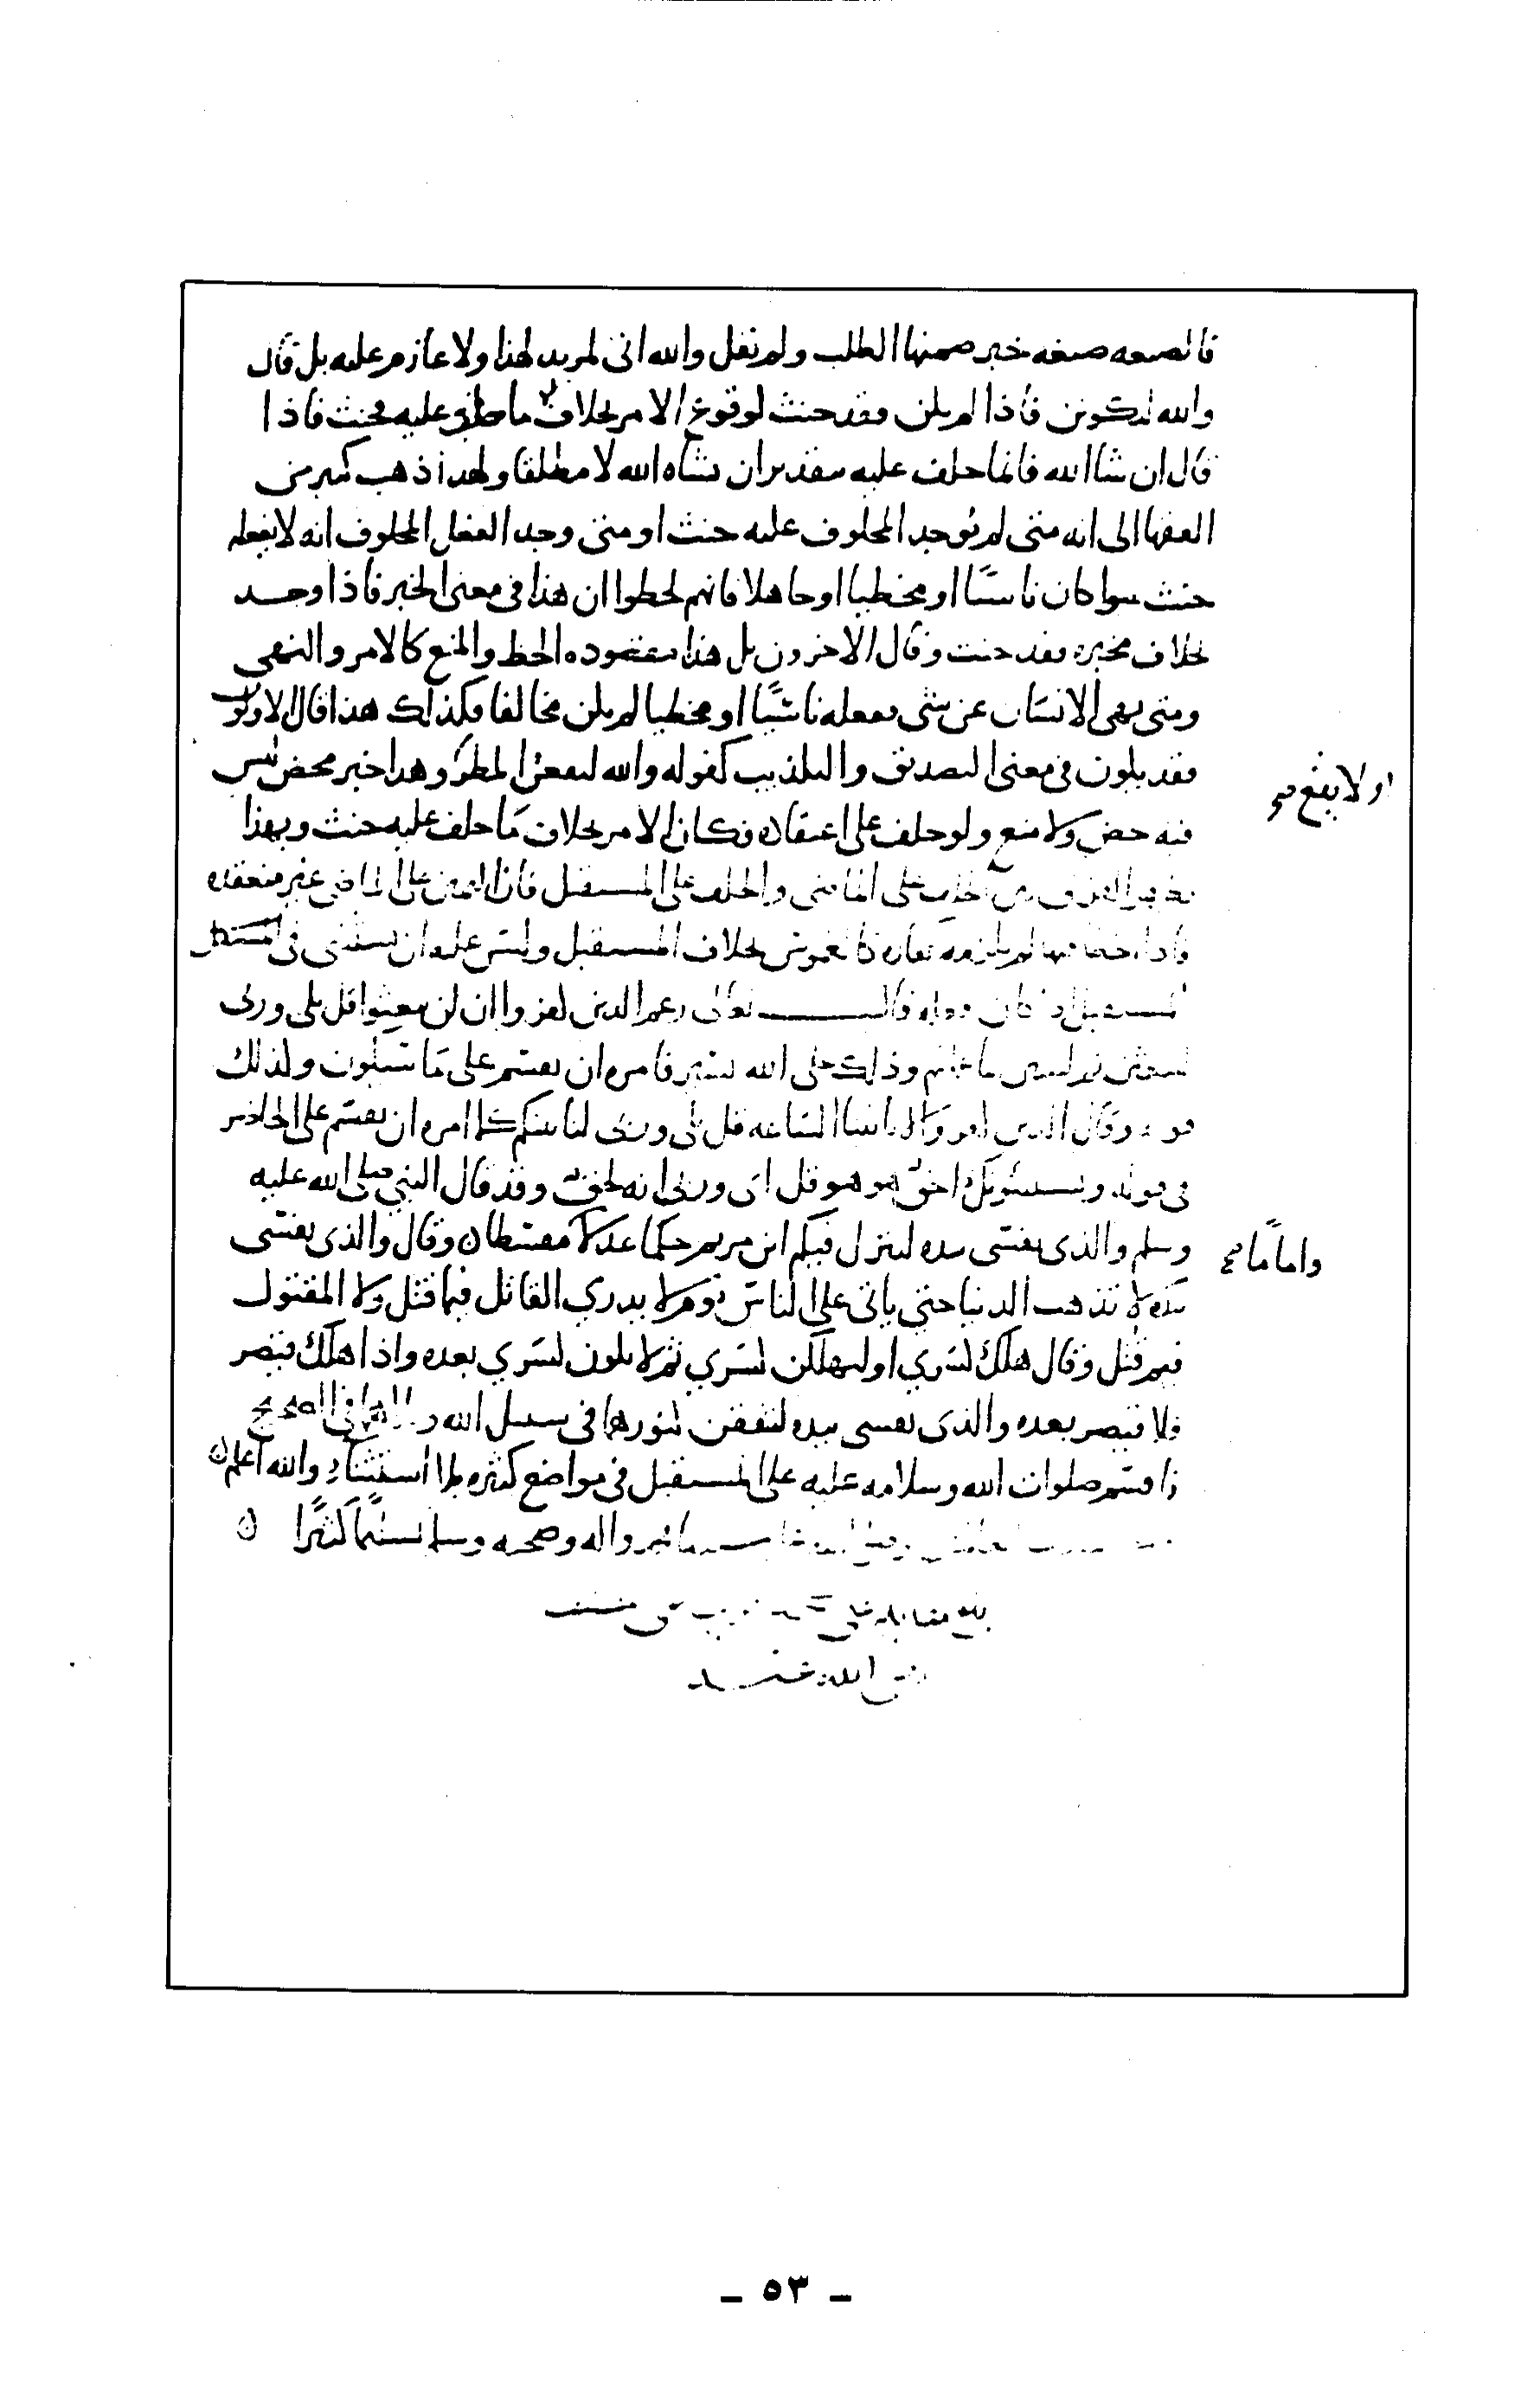 فالصيغه صيغه خبر ضمنها الطلب ولم يقل والله اني لمريد لهذا ولا عازم عليه بل قال
والله ليكونن فاذا لم يكن فقد حنث لوقوع الامر بخلاف ما حلف عليه فحنث فاذا
قال ان شا الله فانما حلف عليه بتقدير ان يشاه الله لا مطلقا ولهذا ذهب كثير من
الفقها الى انه متى لم يوجد المحلوف عليه حنث او متى وجد الفعل المحلوف انه لا يفعله
حنث سوا كان ناسيًا او مخطيا او جاهلا فانهم لحظوا ان هذا في معنى الخبر فاذا وجد
بخلاف مخبره فقد حنث وقال الاخرون بل هذا مقصوده الحظ والمنع كالامر والنهي
ومتى نهى الانسان عن شي ففعله ناسيًا او مخطيا لم يكن مخالفا فكذلك هذا قال الاولون
فقد يكون في معنى التصديق والتكذيب كقوله والله ليقعن المطر وهذا خبر محض ليس
او لا يقع
فيه حض ولا منع ولو حلف على اعتقاده فكان الامر بخلاف ما حلف عليه حنث وبهذا
يظهر الفرق بين الحلف على الماضي والحلف على المستقبل فان اليمين على الماضي غير منعقده
فاذا اخطا فيها لم يلزمه كفاره كالغموس بخلاف المستقبل وليس عليه ان يستثني في المستقبل
اذا كان فعله قال تعالى زعم الذين كفروا ان لن يبعثوا قل بلى وربي
لتبعثن ثم لتنبون بما عملتم وذلك على الله يسير فامره ان يقسم على ما سيكون وكذلك
قوله وقال الذين كفروا لا تاتينا الساعه قل بلى وربي لتاتينكم كما امره ان يقسم على الحاضر
في قوله ويستنبونك احق هو قل اى وربي انه لحق وقد قال النبي صلى الله عليه
وسلم والذى نفسي بيده لينزلن فيكم ابن مريم حكما عدلا مقسطا وقال والذى نفسي
وامامًا
بيده لا تذهب الدنيا حتى ياتي على الناس يوم لا يدري القاتل فيما قتل ولا المقتول
فيم قتل وقال هلك كسري او ليهلكن كسري ثم لا يكون كسري بعده واذا هلك قيصر
فلا قيصر بعده والذى نفسي بيده لتنفقن كنوزهما في سبيل الله وكلاهما في الصحيح
فاقسم صلوات الله وسلامه عليه على المستقبل في مواضع كثيره بلا استثناء والله اعلم
وصلى الله على سيدنا محمد واله وصحبه وسلم تسليمًا كثيرًا
بلغ مقابله على
الله عنه
- ٥٣ -